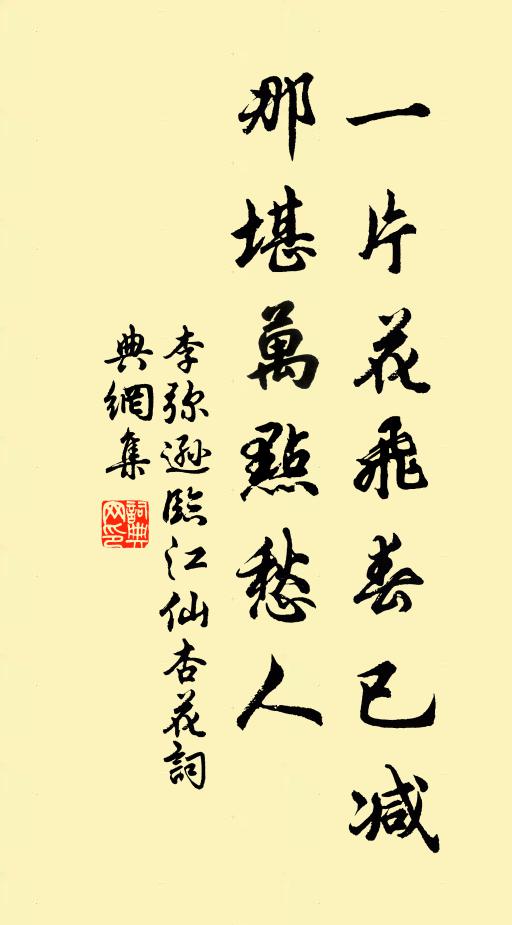 一片花飛春已減
那堪萬點愁人
李弥遜臨江仙杏花詞
典網集
詞典网印